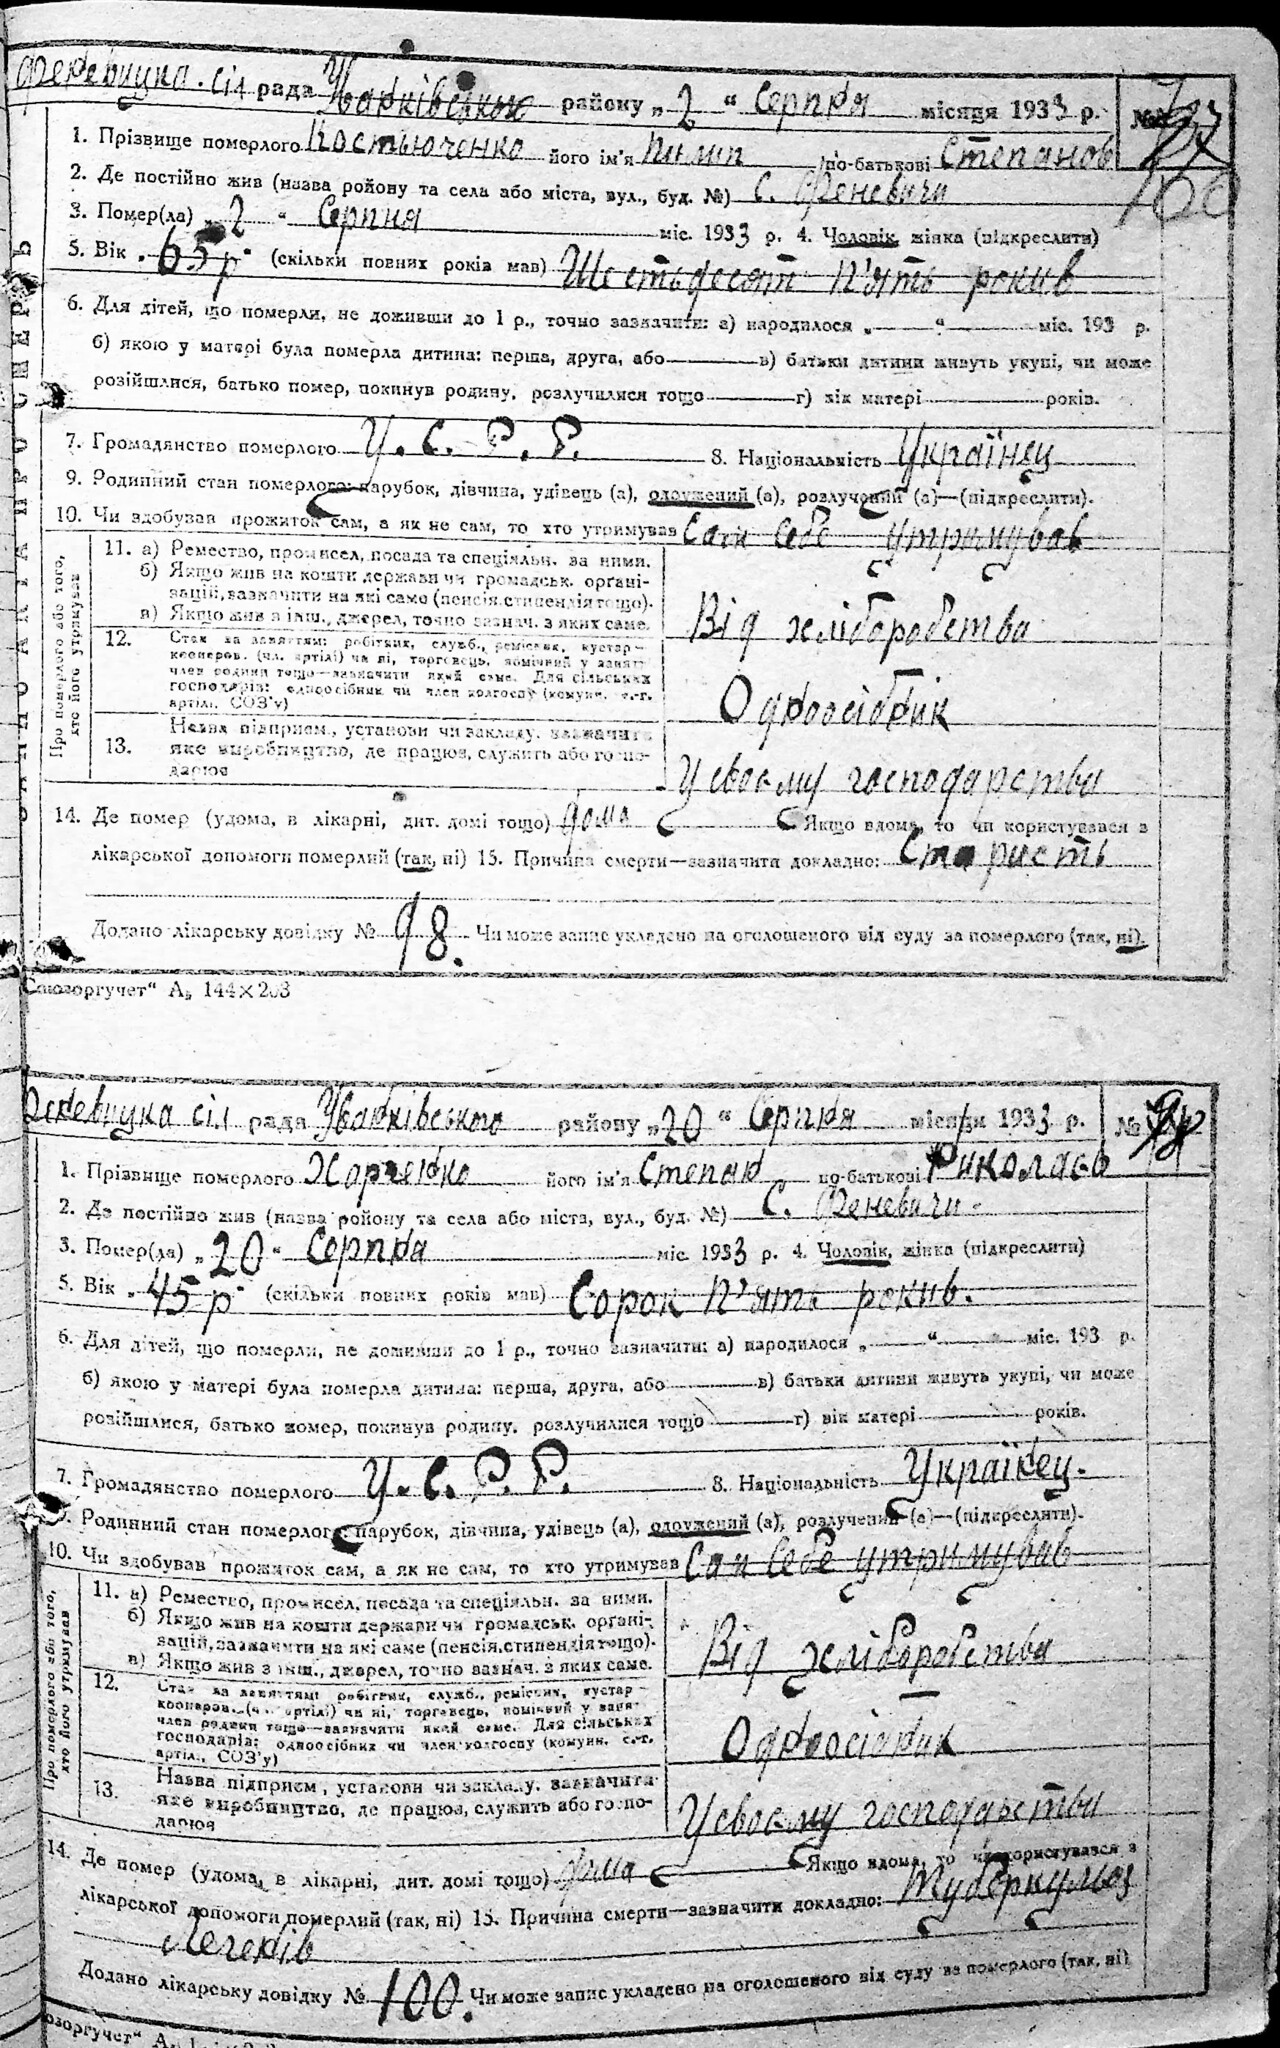 Феневицка сіл рада Іванківського району „2“ Серпня місяця 1933 р. №
1. Прізвище померлого Костьюченко його ім'я Пилип по-батькові Степанов
2. Де постійно жив (назва ройону та села або міста, вул., буд. №) с. Феневичи
3. Помер(ла) „2“ Серпня міс. 1933 р. 4. Чоловік, жінка (підкреслити)
5. Вік 65 р. (скільки повних років мав) Шестьдесят п'ять рокив
6. Для дітей, що померли, не доживши до 1 р., точно зазначити: а) народилося „—“— міс. 193 р.
б) якою у матері була померла дитина: перша, друга, або— в) батьки дитини живуть укупі, чи може
розійшлися, батько помер, покинув родину, розлучилися тощо— г) вік матері— років.
7. Громадянство померлого У. С. Р. Р. 8. Національність Українец
9. Родинний стан померлого: парубок, дівчина, удівець (а), одружений (а), розлучений (а)—(підкреслити).
10. Чи здобував прожиток сам, а як не сам, то хто утримував Сам себе утримував
Про померлого або того, хто його утримував
11. а) Ремество, промисел, посада та спеціяльн. за ними.
б) Якщо жив на кошти держави чи громадськ. організацій, зазначити на які саме (пенсія, стипендія тощо).
в) Якщо жив з інш. джерел, точно зазнач. з яких саме.
Від хліборобства
12. Стан за заняттям: робітник, служб., ремісник, кустар—
кооперов. (чл. артілі) чи ні, торговець, помічний у занят.
член родини тощо—зазначити який саме. Для сільських
господарів: одноосібник чи член колгоспу (комуни, с.-г.
артілі, СОЗ'у)
Одноосібник
13. Назва підприєм., установи чи закладу, зазначити
яке виробництво, де працює, служить або господарює
У своєму господарства
14. Де помер (удома, в лікарні, дит. домі тощо) дома Якщо вдома, то чи користувався з
лікарської допомоги померлий (так, ні) 15. Причина смерти—зазначити докладно: Старисть
Додано лікарську довідку № 98. Чи може запис укладено на оголошеного від суду за померлого (так, ні).
Союзоргучет“ А₅ 144×203
Феневицка сіл рада Іванківського району „20“ Серпня місяця 1933 р. №
1. Прізвище померлого Харченко його ім'я Степан по-батькові Николаєв
2. Де постійно жив (назва ройону та села або міста, вул., буд. №) С. Феневичи
3. Помер(ла) „20“ Серпня міс. 1933 р. 4. Чоловік, жінка (підкреслити)
5. Вік 45 р. (скільки повних років мав) Сорок п'ять рокив.
6. Для дітей, що померли, не доживши до 1 р., точно зазначити: а) народилося „—“— міс. 193 р.
б) якою у матері була померла дитина: перша, друга, або— в) батьки дитини живуть укупі, чи може
розійшлися, батько помер, покинув родину, розлучилися тощо— г) вік матері— років.
7. Громадянство померлого У. С. Р. Р. 8. Національність Українец.
9. Родинний стан померлого: парубок, дівчина, удівець (а), одружений (а), розлучений (а)—(підкреслити).
10. Чи здобував прожиток сам, а як не сам, то хто утримував Сам себе утримував
Про померлого або того, хто його утримував
11. а) Ремество, промисел, посада та спеціяльн. за ними.
б) Якщо жив на кошти держави чи громадськ. організацій, зазначити на які саме (пенсія, стипендія тощо).
в) Якщо жив з інш., джерел, точно зазнач. з яких саме.
Від хліборобства
12. Стан за заняттям: робітник, служб., ремісник, кустар—
кооперов. (чл. артілі) чи ні, торговець, помічний у занят.
член родини тощо—зазначити який саме. Для сільських
господарів: одноосібник чи член колгоспу (комуни, с.-г.
артілі, СОЗ'у)
Одноосібник
13. Назва підприєм., установи чи закладу, зазначити
яке виробництво, де працює, служить або господарює
У своєму господарства
14. Де помер (удома, в лікарні, дит. домі тощо) дома Якщо вдома, то чи користувався з
лікарської допомоги померлий (так, ні) 15. Причина смерти—зазначити докладно: Туберкульоз
Легенів
Додано лікарську довідку № 100. Чи може запис укладено на оголошеного від суду за померлого (так, ні)